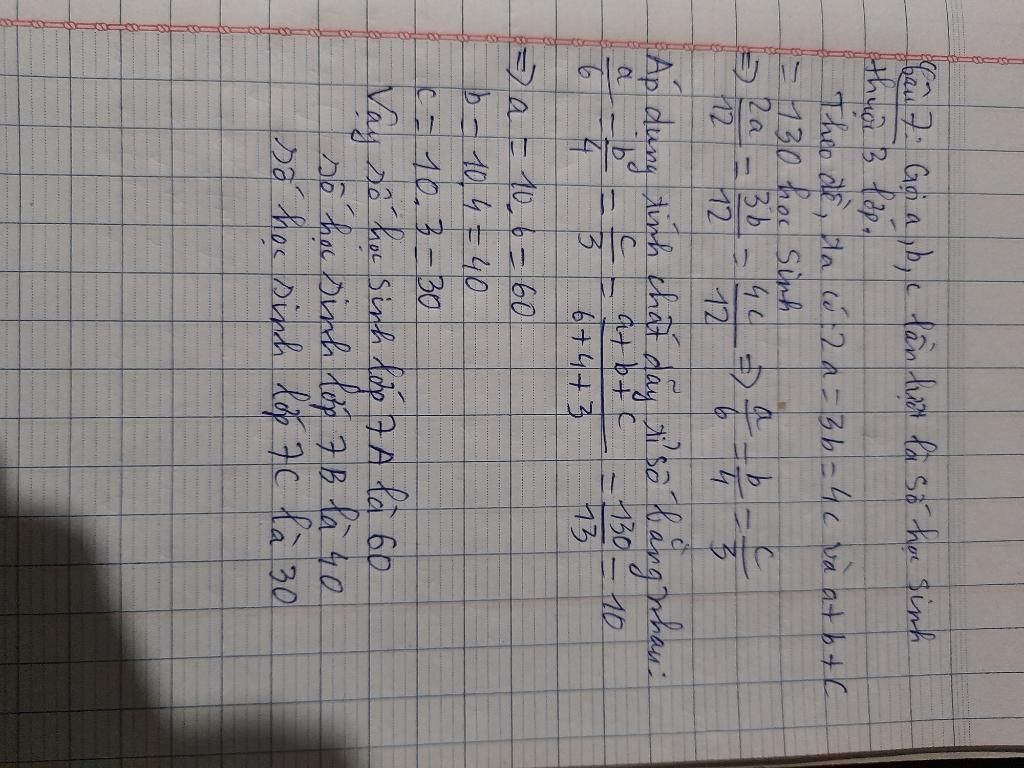 Câu 7: Gọi a, b, c lần lượt là số học sinh
thuộc 3 lớp.
Theo đề, ta có: 2a = 3b = 4c và a + b + c
= 130 học sinh
=> 2a/12 = 3b/12 = 4c/12 => a/6 = b/4 = c/3
Áp dụng tính chất dãy tỉ số bằng nhau:
a/6 = b/4 = c/3 = a+b+c/6+4+3 = 130/13 = 10
=> a = 10.6 = 60
b = 10.4 = 40
c = 10.3 = 30
Vậy số học sinh lớp 7A là 60
số học sinh lớp 7B là 40
số học sinh lớp 7C là 30